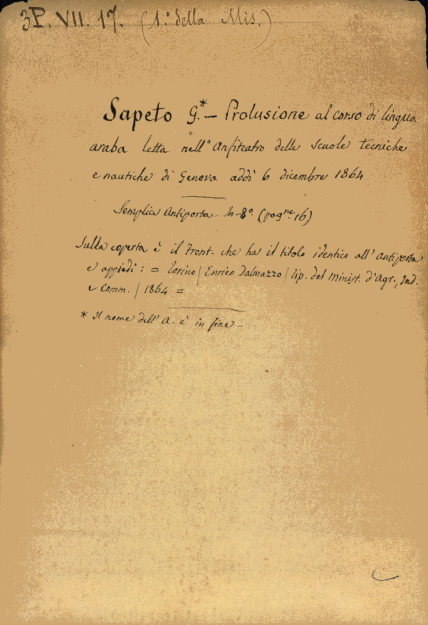 3P. VII. 17. (1.º della Mis.)
Sapeto G.* — Prolusione al corso di lingua
araba letta nell'Anfiteatro delle scuole tecniche
e nautiche di Genova addì 6 dicembre 1864
Semplice Antiporta - In-8º (pag.ne 16)
Sulla coperta è il Front. che ha il titolo identico all'Antiporta
e appiedi: = Torino / Enrico Dalmazzo / tip. del Minist. d'Agr., Ind.
e Comm. / 1864 =
* Il nome dell'A. è in fine -